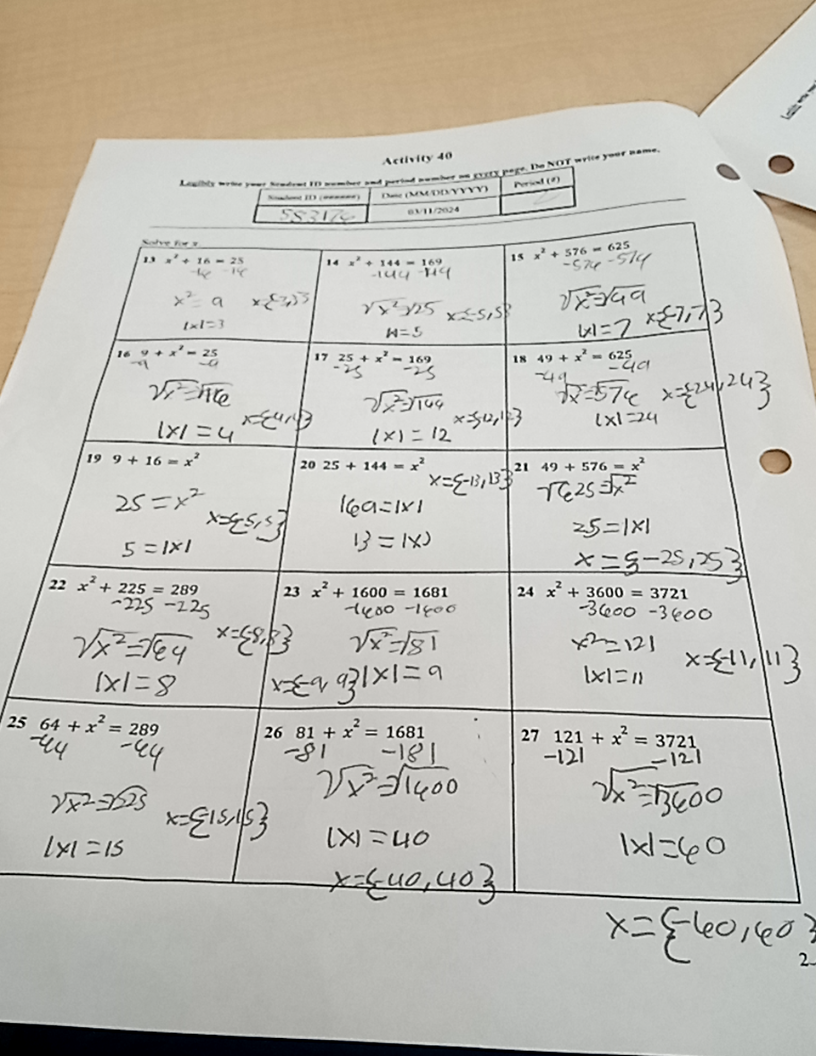 Activity 40
Legibly write your Student ID number and period number on every page. Do NOT write your name.
Student ID (######) Date (MM/DD/YYYY) Period (#)
583176 03/11/2024
Solve for x
13 x² + 16 = 25
-16 -16
x² = 9 x={-3,3}
|x|=3
14 x² + 144 = 169
-144 -144
√x²=√25 x={-5,5}
|x|=5
15 x² + 576 = 625
-576 -576
√x²=√49
|x|=7 x={-7,7}
16 9 + x² = 25
-9 -9
√x²=√16
|x|=4 x={-4,4}
17 25 + x² = 169
-25 -25
√x²=√144
|x|=12 x={-12,12}
18 49 + x² = 625
-49 -49
√x²=√576 x={-24,24}
|x|=24
19 9 + 16 = x²
25=x²
x={-5,5}
5=|x|
20 25 + 144 = x²
x={-13,13}
169=|x|
13=|x|
21 49 + 576 = x²
√625=√x²
25=|x|
x={-25,25}
22 x² + 225 = 289
-225 -225
√x²=√64 x={-8,8}
|x|=8
23 x² + 1600 = 1681
-1600 -1600
√x²=√81
x={-9,9} |x|=9
24 x² + 3600 = 3721
-3600 -3600
x²=121
|x|=11 x={-11,11}
25 64 + x² = 289
-64 -64
√x²=√225
x={-15,15}
|x|=15
26 81 + x² = 1681
-81 -181
√x²=√1600
|x|=40
x={-40,40}
27 121 + x² = 3721
-121 -121
√x²=√3600
|x|=60
x={-60,60}
2